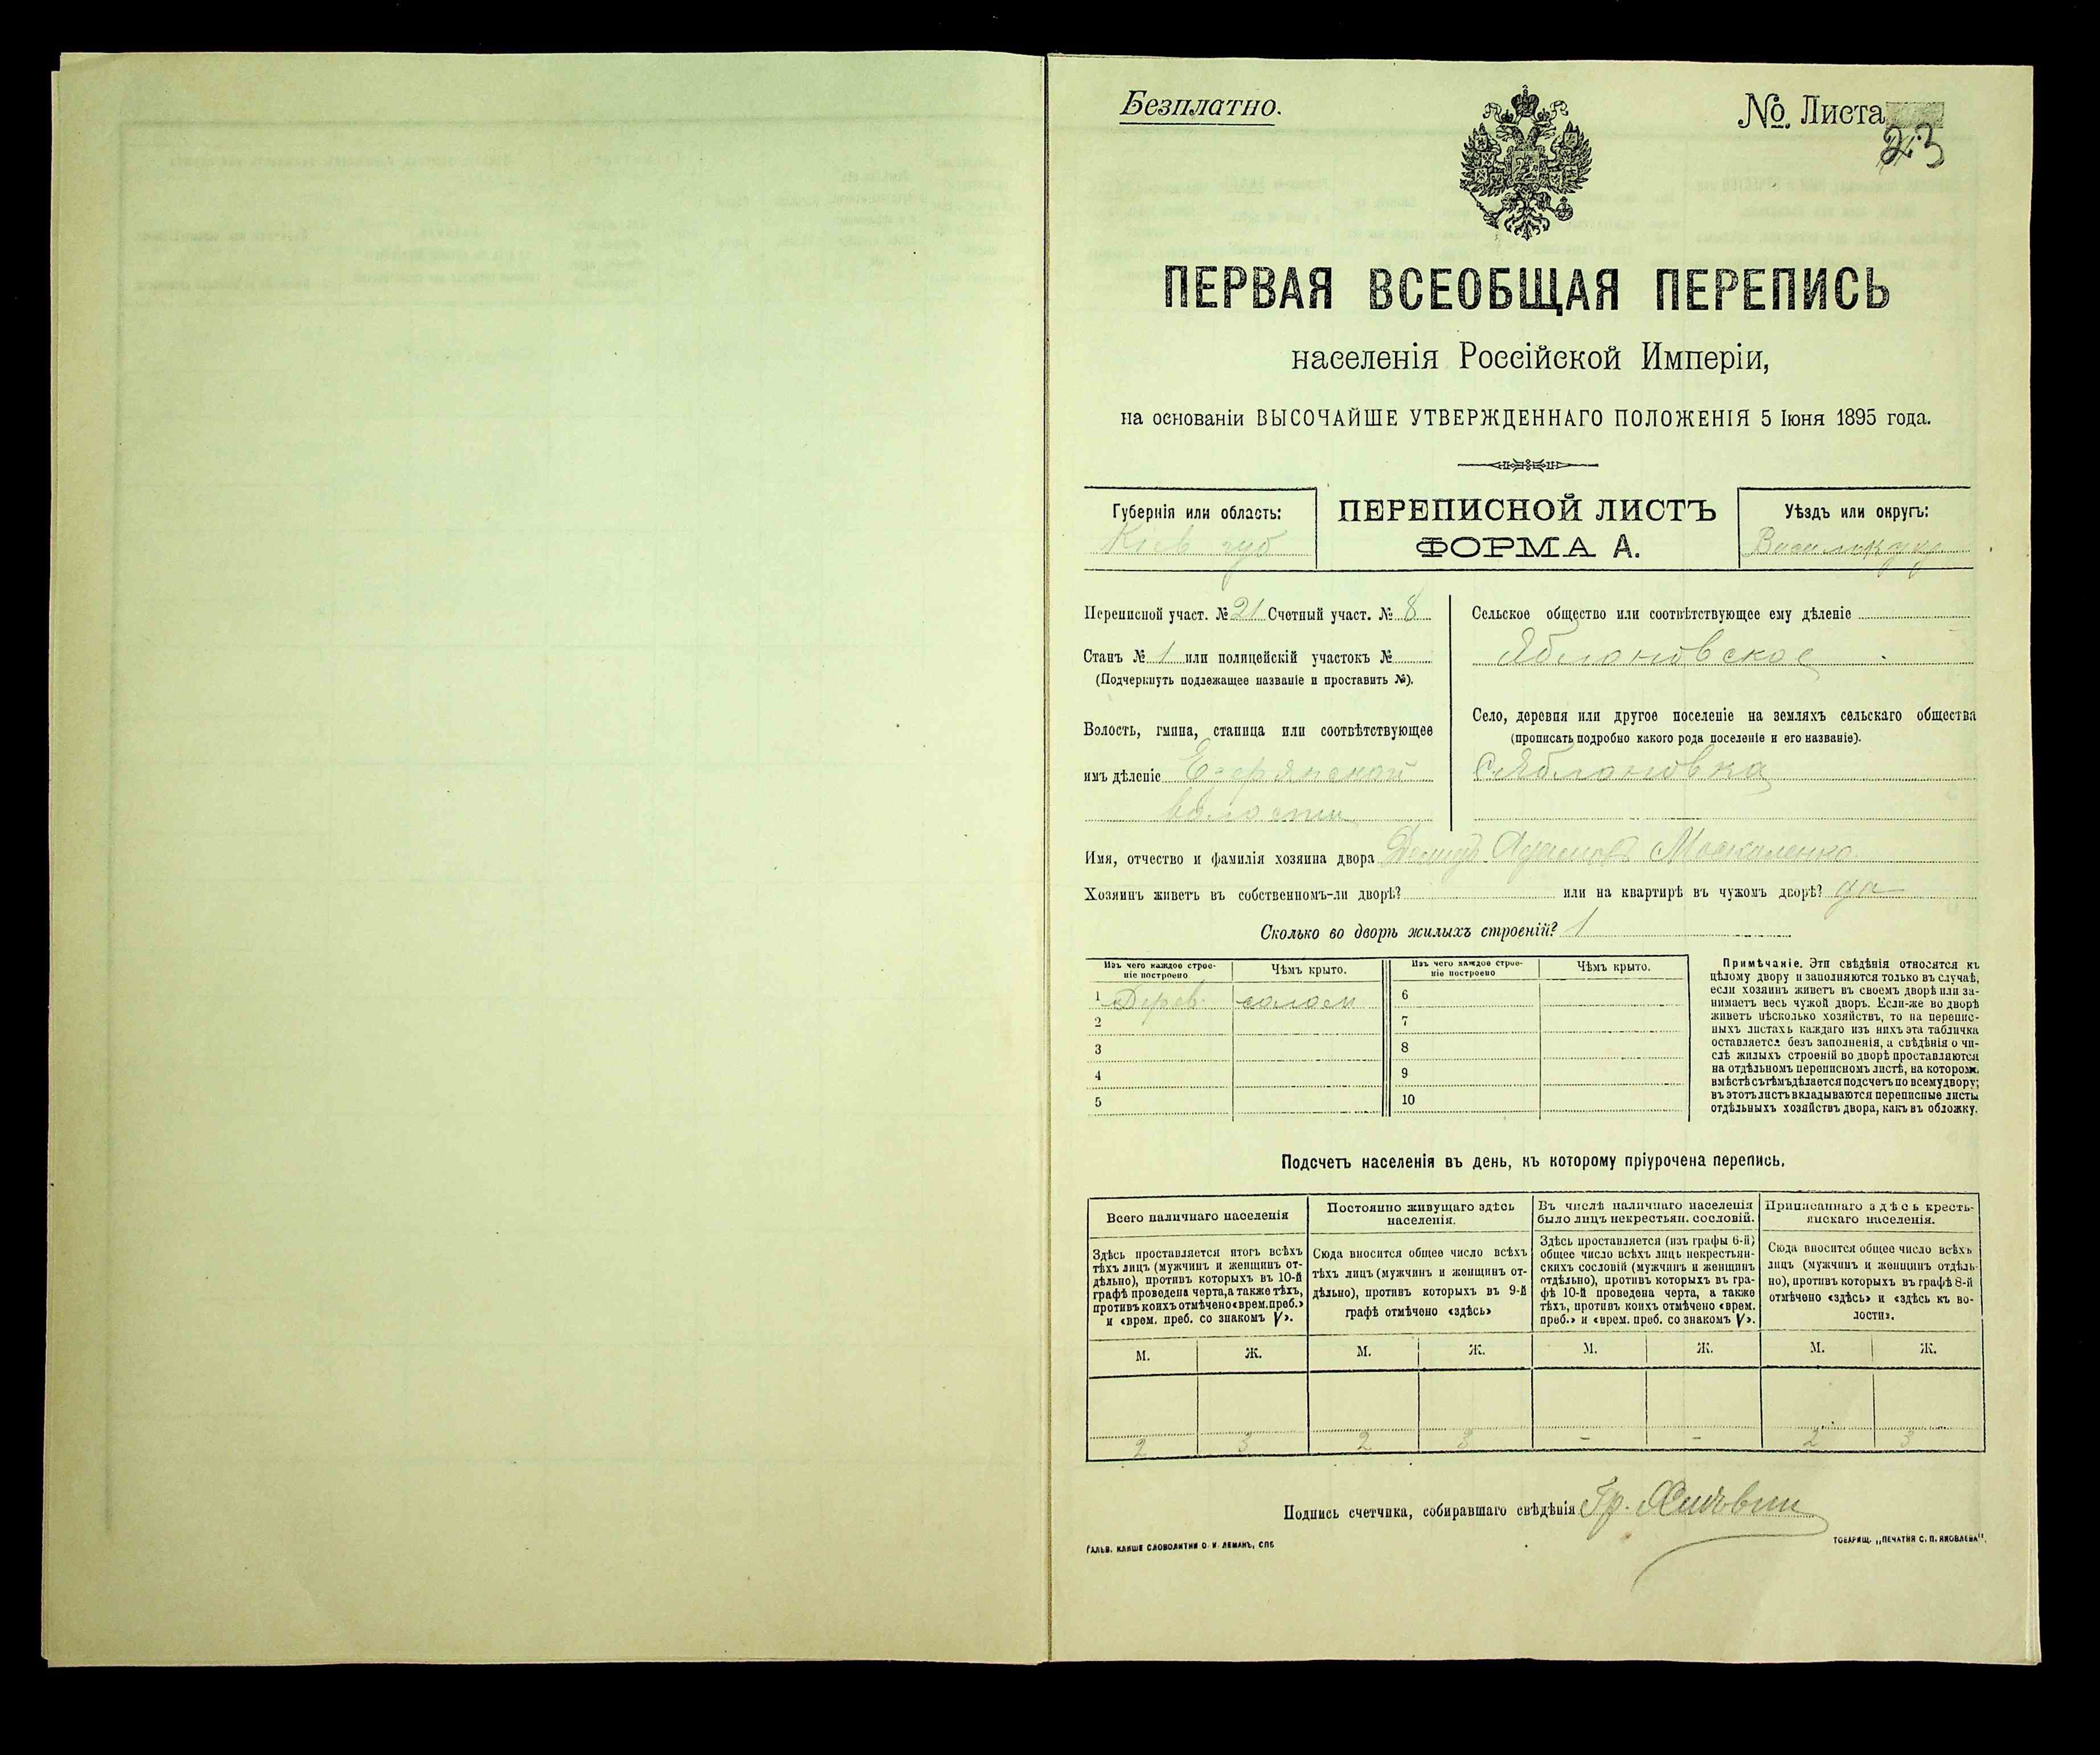 Безплатно.
№ Листа
23
ПЕРВАЯ ВСЕОБЩАЯ ПЕРЕПИСЬ
населенія Россійской Имперіи,
на основаніи ВЫСОЧАЙШЕ УТВЕРЖДЕННАГО ПОЛОЖЕНІЯ 5 Іюня 1895 года.
Губернія или область:
Кіев губ
ПЕРЕПИСНОЙ ЛИСТЪ
ФОРМА А.
Уѣздъ или округъ:
Переписной участ. № 21 Счетный участ. № 8
Станъ № 1 или полицейскій участокъ №
(Подчеркнуть подлежащее названіе и проставить №).
Волость, гмина, станица или соотвѣтствующее
имъ дѣленіе Езерянской
волости
Сельское общество или соотвѣтствующее ему дѣленіе
Яблоновское
Село, деревня или другое поселеніе на земляхъ сельскаго общества
(прописать подробно какого рода поселеніе и его названіе).
С. Яблоновка
Имя, отчество и фамилія хозяина двора Демидъ Адамовъ Москаленко
Хозяинъ живетъ въ собственномъ-ли дворѣ? или на квартирѣ въ чужомъ дворѣ? да
Сколько во дворѣ жилыхъ строеній? 1
Изъ чего каждое строе-
ніе построено
Чѣмъ крыто.
Изъ чего каждое строе-
ніе построено
Чѣмъ крыто.
1 Дерев. солом 6
2 7
3 8
4 9
5 10
Примѣчаніе. Эти свѣдѣнія относятся къ
цѣлому двору и заполняются только въ случаѣ,
если хозяинъ живетъ въ своемъ дворѣ или за-
нимаетъ весь чужой дворъ. Если-же во дворѣ
живетъ нѣсколько хозяйствъ, то на перепис-
ныхъ листахъ каждаго изъ нихъ эта табличка
оставляется безъ заполненія, а свѣдѣнія о чи-
слѣ жилыхъ строеній во дворѣ проставляются
на отдѣльномъ переписномъ листѣ, на которомъ
вмѣстѣ съ тѣмъ дѣлается подсчетъ по всему двору;
въ этотъ листъ вкладываются переписные листы
отдѣльныхъ хозяйствъ двора, какъ въ обложку.
Подсчетъ населенія въ день, къ которому пріурочена перепись.
Всего наличнаго населенія
Здѣсь проставляется итогъ всѣхъ
тѣхъ лицъ (мужчинъ и женщинъ от-
дѣльно), противъ которыхъ въ 10-й
графѣ проведена черта, а также тѣхъ,
противъ коихъ отмѣчено «врем. преб.»
и «врем. преб. со знакомъ V».
Постоянно живущаго здѣсь
населенія.
Сюда вносится общее число всѣхъ
тѣхъ лицъ (мужчинъ и женщинъ от-
дѣльно), противъ которыхъ въ 9-й
графѣ отмѣчено «здѣсь»
Въ числѣ наличнаго населенія
было лицъ некрестьян. сословій.
Здѣсь проставляется (изъ графы 6-й)
общее число всѣхъ лицъ некрестьян-
скихъ сословій (мужчинъ и женщинъ
отдѣльно), противъ которыхъ въ гра-
фѣ 10-й проведена черта, а также
тѣхъ, противъ коихъ отмѣчено «врем.
преб.» и «врем. преб. со знакомъ V».
Приписаннаго здѣсь кресть-
янскаго населенія.
Сюда вносится общее число всѣхъ
лицъ (мужчинъ и женщинъ отдѣль-
но), противъ которыхъ въ графѣ 8-й
отмѣчено «здѣсь» и «здѣсь къ во-
лости».
М. Ж. М. Ж. М. Ж. М. Ж.
2 3 2 3 – – 2 3
Подпись счетчика, собиравшаго свѣдѣнія Гр.
ГАЛЬВ. КЛИШЕ СЛОВОЛИТНИ О. И. ЛЕМАНЪ, СПБ
ТОВАРИЩ. „ПЕЧАТНЯ С. П. ЯКОВЛЕВА".